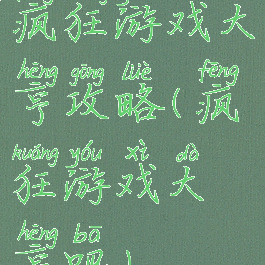 疯狂游戏大
hēng gōng lüè fēng
亨攻略(疯
kuáng yóu xì dà
狂游戏大
hēng bā
亨吧)